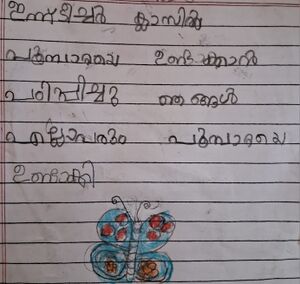 ഇന്ന് ടീച്ചർ ക്ലാസിൽ
പൂമ്പാറ്റയെ ഉണ്ടാക്കാൻ
പഠിപ്പിച്ചു ഞങ്ങൾ
എല്ലാവരും പൂമ്പാറ്റയെ
ഉണ്ടാക്കി